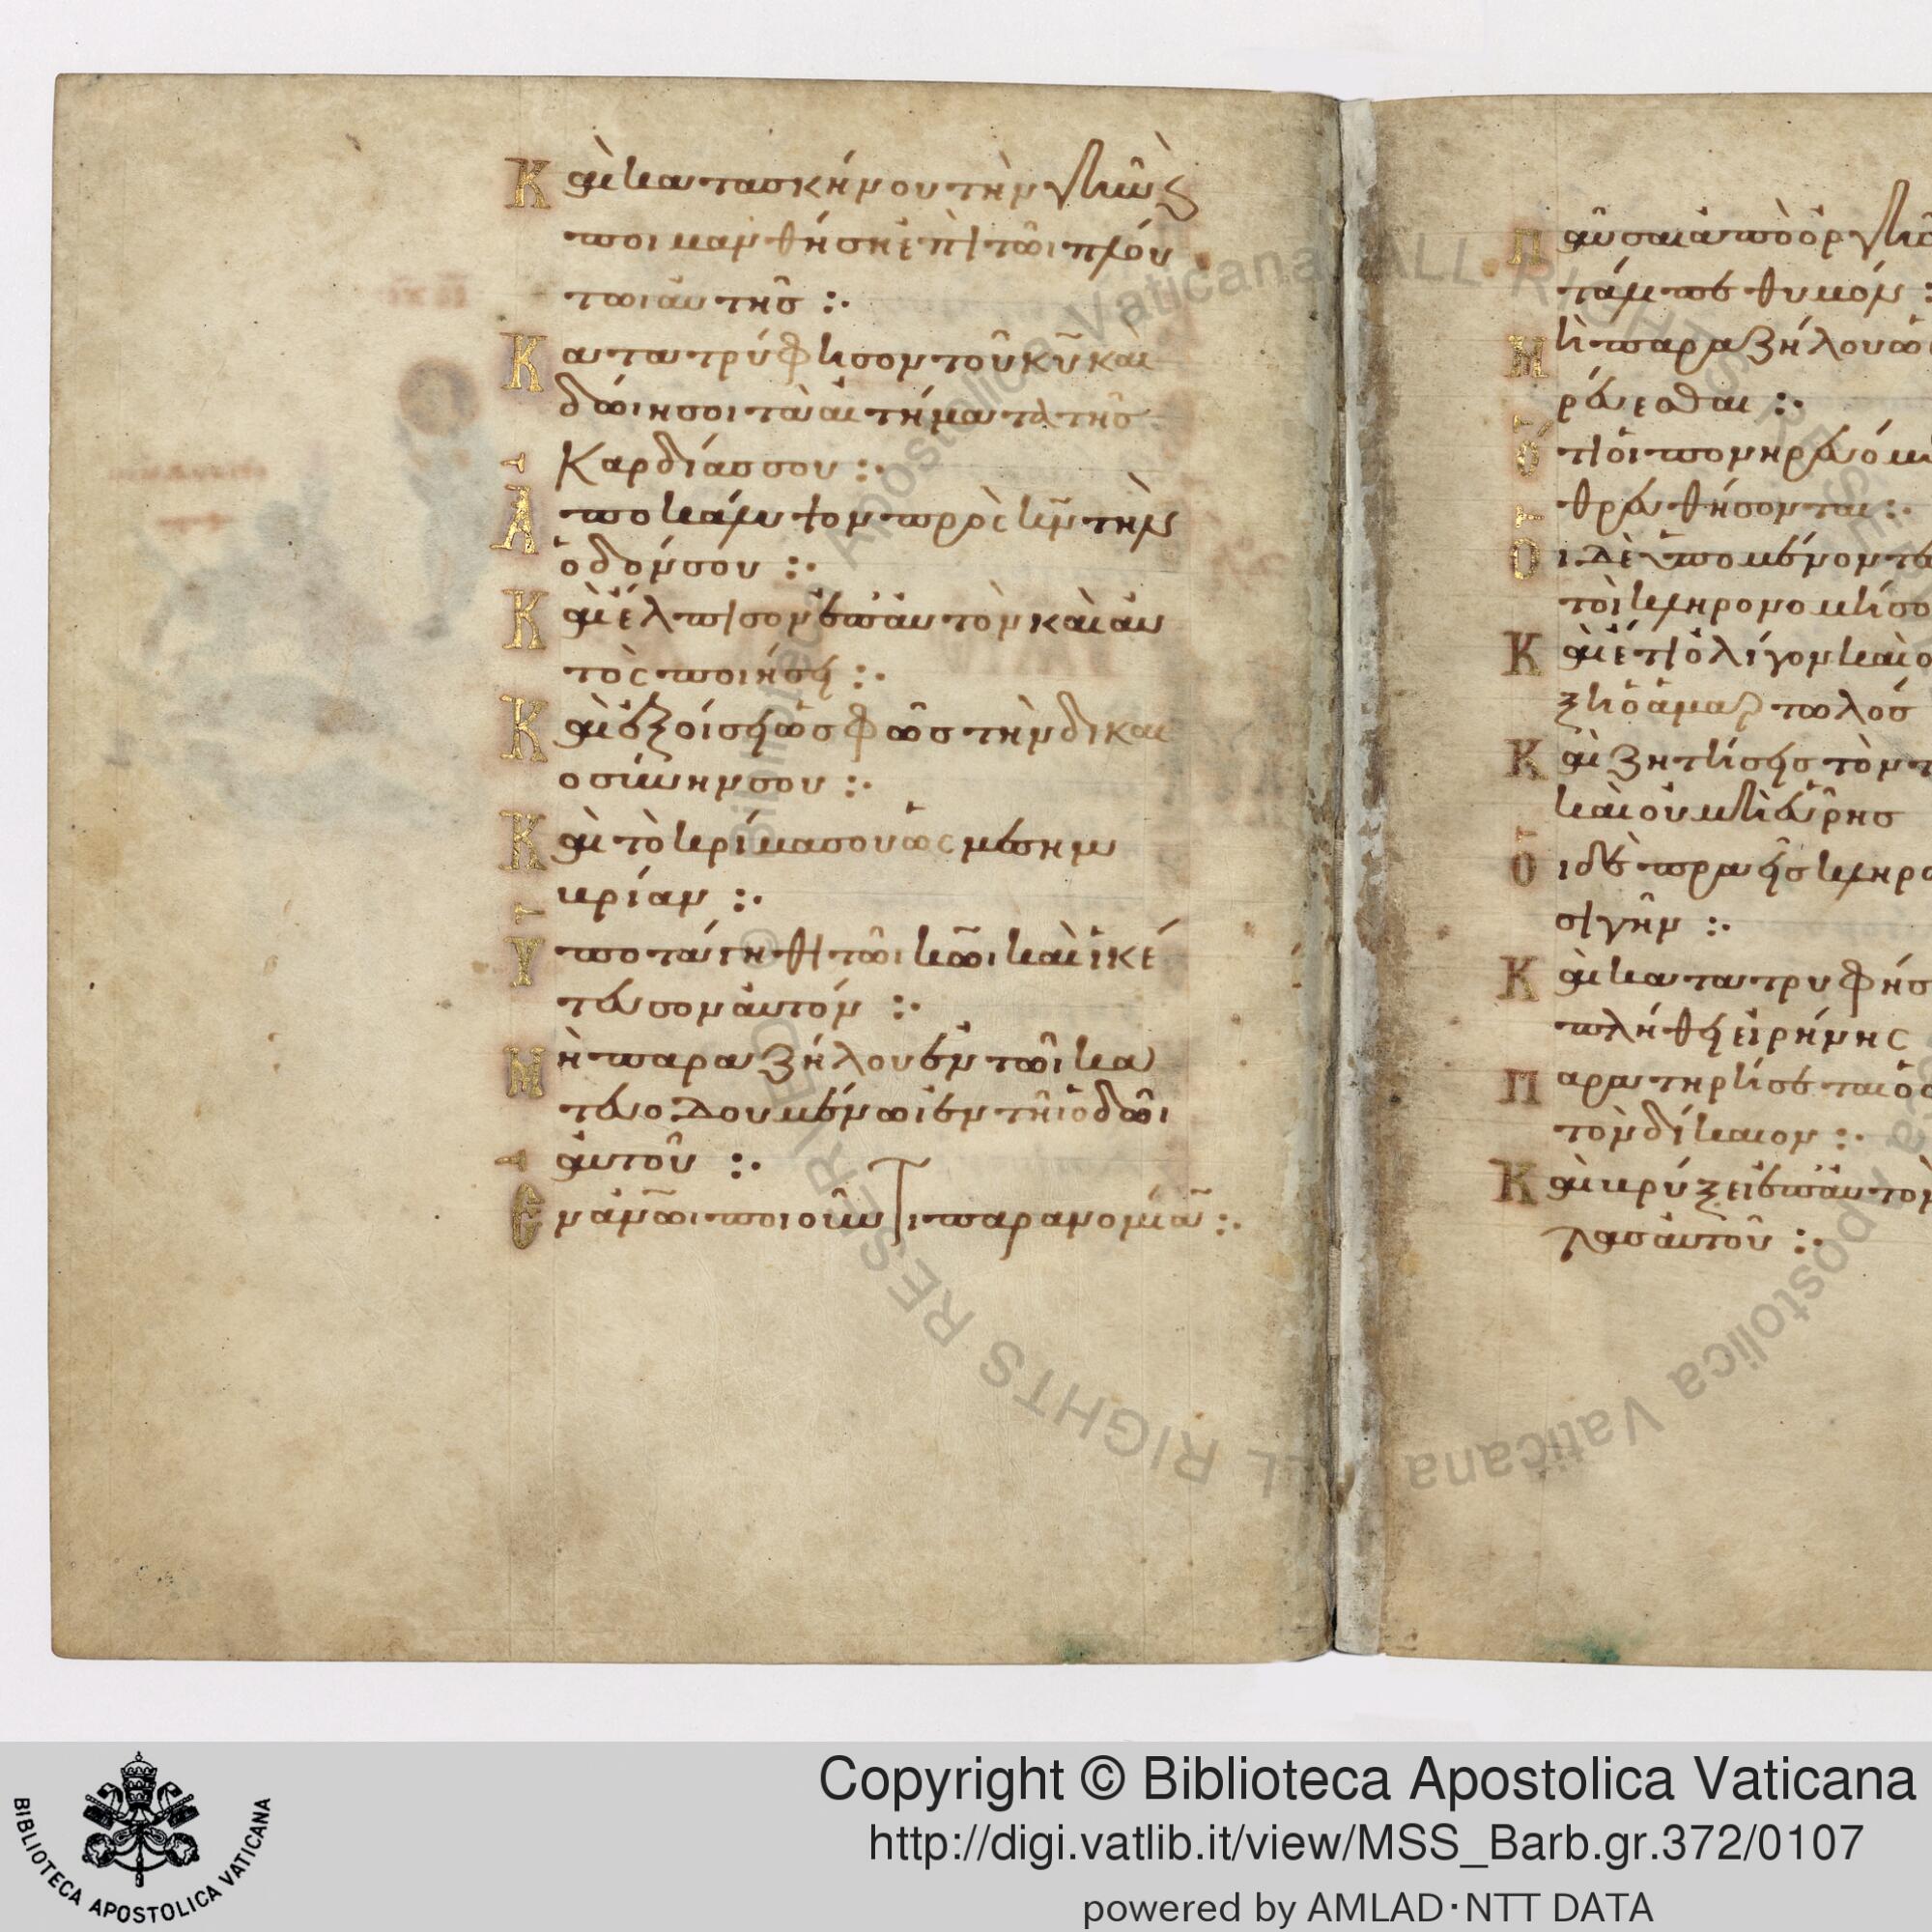 Καὶ κατασκήνου τὴν γῆν καὶ
ποιμανθήσῃ ἐπὶ τῶι πλού
τωι αὐτῆς :·
Κατατρύφησον τοῦ κῦ καὶ
δώιη σοι τὰ αἰτήματα τῆς
καρδίας σου :·
Ἀποκάλυψον πρὸς κν̄ τὴν
ὁδόν σου :·
Καὶ ἔλπισον ἐπ' αὐτὸν καὶ αὐ
τὸς ποιήσει :·
Καὶ ἐξοίσει ὡς φῶς τὴν δικαι
οσύνην σου :·
Καὶ τὸ κρίμα σου ὡς μεσημ
βρίαν :·
Ὑποτάγηθι τῶι κω̄ι καὶ ἱκέ
τευσον αὐτόν :·
Μὴ παραζήλου ἐν τῶι κα
τευοδουμένωι ἐν τῆι ὁδῶι
αὐτοῦ :·
Ἐν ἀν̄ωι ποιοῦντι παρανομίαν :·
Παῦσαι ἀπὸ ὀργῆς
θυμόν :
Μὴ παραζήλου ὥ
ρεύεσθαι :·
Ὅτι οἱ πονηρευόμ
θρευθήσονται :·
Οἱ δὲ ὑπομένοντε
τοὶ κληρονομήσο
Καὶ ἔτι ὀλίγον καὶ ο
ξη ὁ ἁμαρτωλός
Καὶ ζητήσεις τὸν τ
καὶ οὐ μὴ εὕρῃς
Οἱ δὲ πραεῖς κληρο
σι γῆν :·
Καὶ κατατρυφήσ
πλήθει εἰρήνης
Παρατηρήσεται ὁ
τὸν δίκαιον :·
Καὶ βρύξει ἐπ' αὐτὸν
τας αὐτοῦ :·
© Biblioteca Apostolica Vaticana ALL RIGHTS RESERVED
Copyright © Biblioteca Apostolica Vaticana
http://digi.vatlib.it/view/MSS_Barb.gr.372/0107
powered by AMLAD·NTT DATA
BIBLIOTECA APOSTOLICA VATICANA